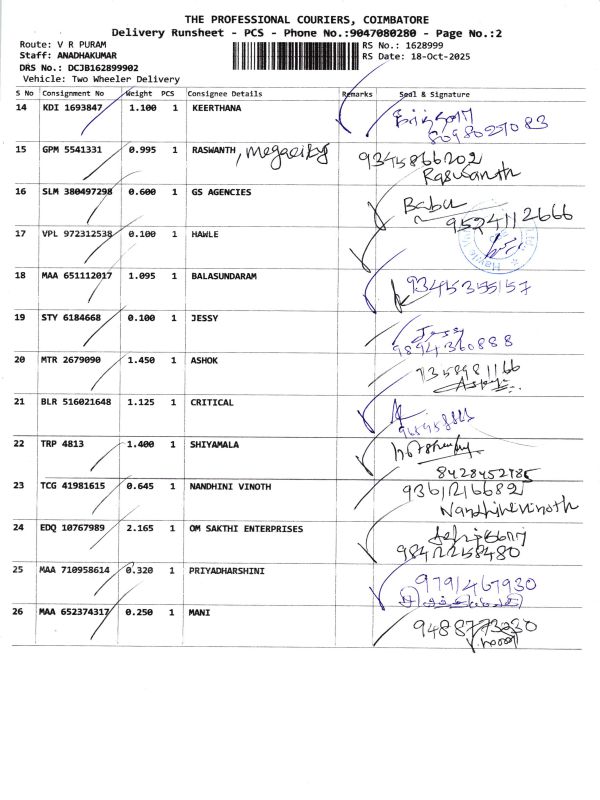 THE PROFESSIONAL COURIERS, COIMBATORE
Delivery Runsheet - PCS - Phone No.:9047080280 - Page No.:2
Route: V R PURAM
RS No.: 1628999
Staff: ANADHAKUMAR
RS Date: 18-Oct-2025
DRS No.: DCJB162899902
Vehicle: Two Wheeler Delivery
S No Consignment No Weight PCS Consignee Details Remarks Seal & Signature
14 KDI 1693847 1.100 1 KEERTHANA
8098027083
15 GPM 5541331 0.995 1 RASWANTH, Megacity 9345866202
Raswanth
16 SLM 380497298 0.600 1 GS AGENCIES Babu
9524112666
17 VPL 972312538 0.100 1 HAWLE
18 MAA 651112017 1.095 1 BALASUNDARAM 9345355157
19 STY 6184668 0.100 1 JESSY Jessy
9894360888
20 MTR 2679090 1.450 1 ASHOK 7358981166
21 BLR 516021648 1.125 1 CRITICAL
22 TRP 4813 1.400 1 SHIYAMALA
8428452785
23 TCG 41981615 0.645 1 NANDHINI VINOTH 9361216682
Nandhinivinoth
24 EDQ 10767989 2.165 1 OM SAKTHI ENTERPRISES
9842258480
25 MAA 710958614 0.320 1 PRIYADHARSHINI 9791467930
26 MAA 652374317 0.250 1 MANI 9488773230